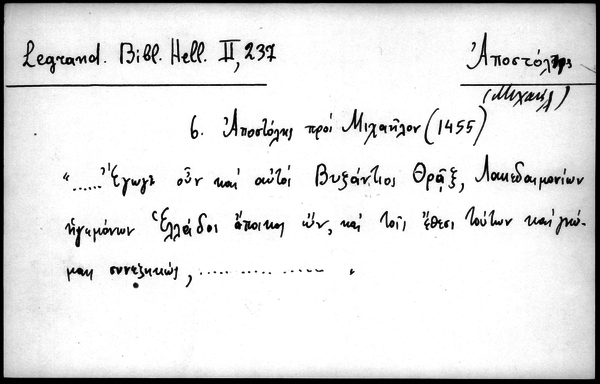 Legrand. Bibl. Hell. II, 237
Ἀποστόλης
(Μιχαήλ)
6. Ἀποστόλης πρὸς Μιχαῆλον (1455)
“.....Ἔγωγε οὖν καὶ αὐτὸς Βυζάντιος Θρᾷξ, Λακεδαιμονίων
ἡγεμόνων Ἑλλάδος ἄποικος ὤν, καὶ τοῖς ἔθεσι τούτων καὶ γνώ-
μαις συνεζηκώς, ... ..... ..... .